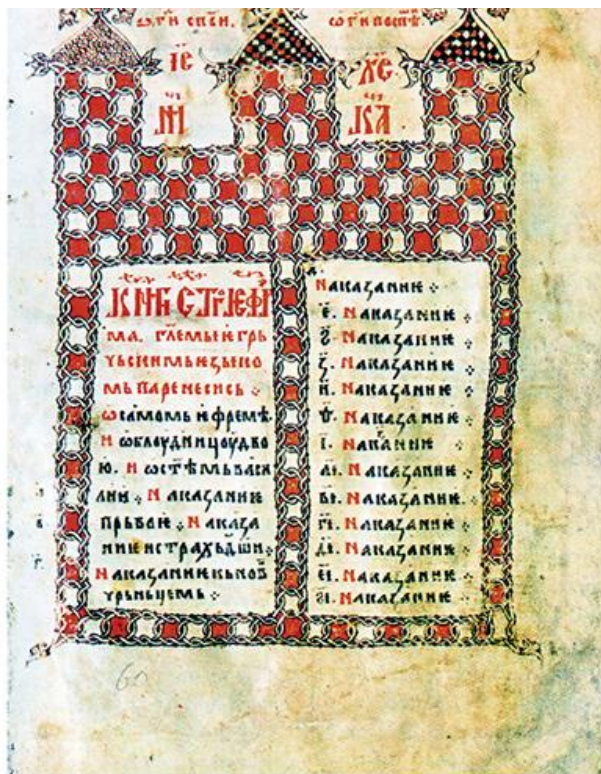 ѡ҃ги сп҃си. ѡ҃ги поспѣ.
і҃е х҃е
КНИГꙐ СТ҃ГО ЈЕФРѢ
ма. гл҃емыꙗ грь
чьскимь ѥзыко
мь паренесись
ѡ самомь ѥфремѣ.
и ѡ блоудници ѡудво
ю. и ѡ ст҃ѣмь васи
лии ⁘ Наказаниѥ
прьвоѥ ⁘ Наказа
ниѥ и страхъ д҃ши ⁘
Наказаниѥ къ новꙑ
чрьньцемь ⁘
д҃.
Наказаниѥ ⁘
е҃. Наказаниѥ ⁘
ѕ҃. Наказаниѥ ⁘
з҃. Наказаниѥ ⁘
и҃. Наказаниѥ ⁘
ѳ҃. Наказаниѥ ⁘
і҃. Наказание ⁘
аі҃. Наказаниѥ ⁘
ві҃. Наказаниѥ ⁘
гі҃. Наказаниѥ ⁘
ді҃. Наказаниѥ ⁘
еі҃. Наказаниѥ ⁘
ѕі҃. Наказаниѥ ⁘
60